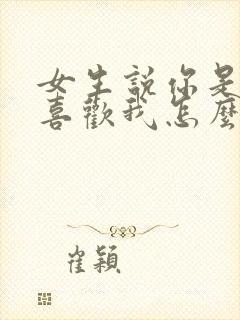 女生說你是
喜歡我怎麼
崔穎